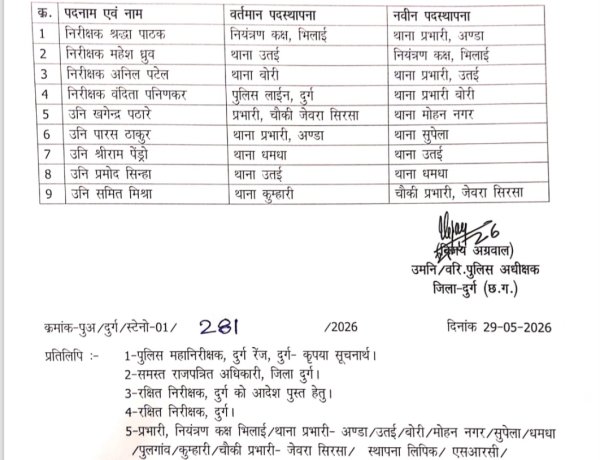 क्र. पदनाम एवं नाम वर्तमान पदस्थापना नवीन पदस्थापना
1 निरीक्षक श्रद्धा पाठक नियंत्रण कक्ष, भिलाई थाना प्रभारी, अण्डा
2 निरीक्षक महेश ध्रुव थाना उतई नियंत्रण कक्ष, भिलाई
3 निरीक्षक अनिल पटेल थाना बोरी थाना प्रभारी, उतई
4 निरीक्षक वंदिता पनिणकर पुलिस लाईन, दुर्ग थाना प्रभारी बोरी
5 उनि खगेन्द्र पठारे प्रभारी, चौकी जेवरा सिरसा थाना मोहन नगर
6 उनि पारस ठाकुर थाना प्रभारी, अण्डा थाना सुपेला
7 उनि श्रीराम पेंड्रो थाना धमधा थाना उतई
8 उनि प्रमोद सिन्हा थाना उतई थाना धमधा
9 उनि समित मिश्रा थाना कुम्हारी चौकी प्रभारी, जेवरा सिरसा
26
(विजय अग्रवाल)
उमनि/वरि.पुलिस अधीक्षक
जिला-दुर्ग (छ.ग.)
क्रमांक-पुअ/दुर्ग/स्टेनो-01/ 281 /2026 दिनांक 29-05-2026
प्रतिलिपि :- 1-पुलिस महानिरीक्षक, दुर्ग रेंज, दुर्ग- कृपया सूचनार्थ।
2-समस्त राजपत्रित अधिकारी, जिला दुर्ग।
3-रक्षित निरीक्षक, दुर्ग को आदेश पुस्त हेतु।
4-रक्षित निरीक्षक, दुर्ग।
5-प्रभारी, नियंत्रण कक्ष भिलाई/थाना प्रभारी- अण्डा/उतई/बोरी/मोहन नगर/सुपेला/धमधा
/पुलगांव/कुम्हारी/चौकी प्रभारी- जेवरा सिरसा/ स्थापना लिपिक/ एसआरसी/